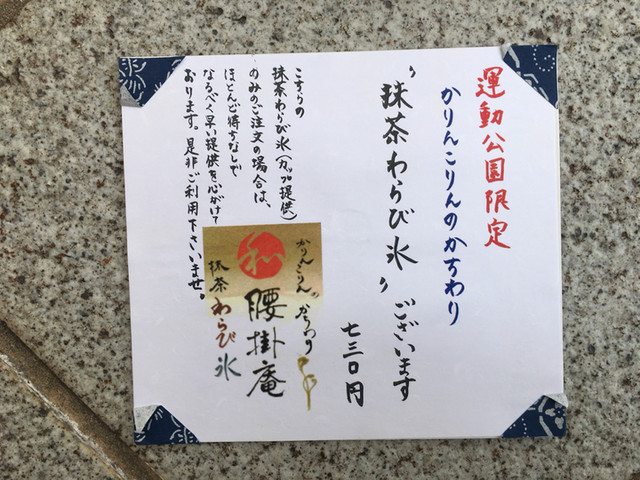 運動公園限定
かりんこりんのかちわり
"抹茶わらび氷"ございます
七三〇円
こちらの
抹茶わらび氷(カップ提供)
のみのご注文の場合は、
ほとんど待ちなしで
なるべく早い提供を心がけて
おります。是非ご利用下さいませ。
和
かりんこりん
腰掛庵
抹茶わらび氷